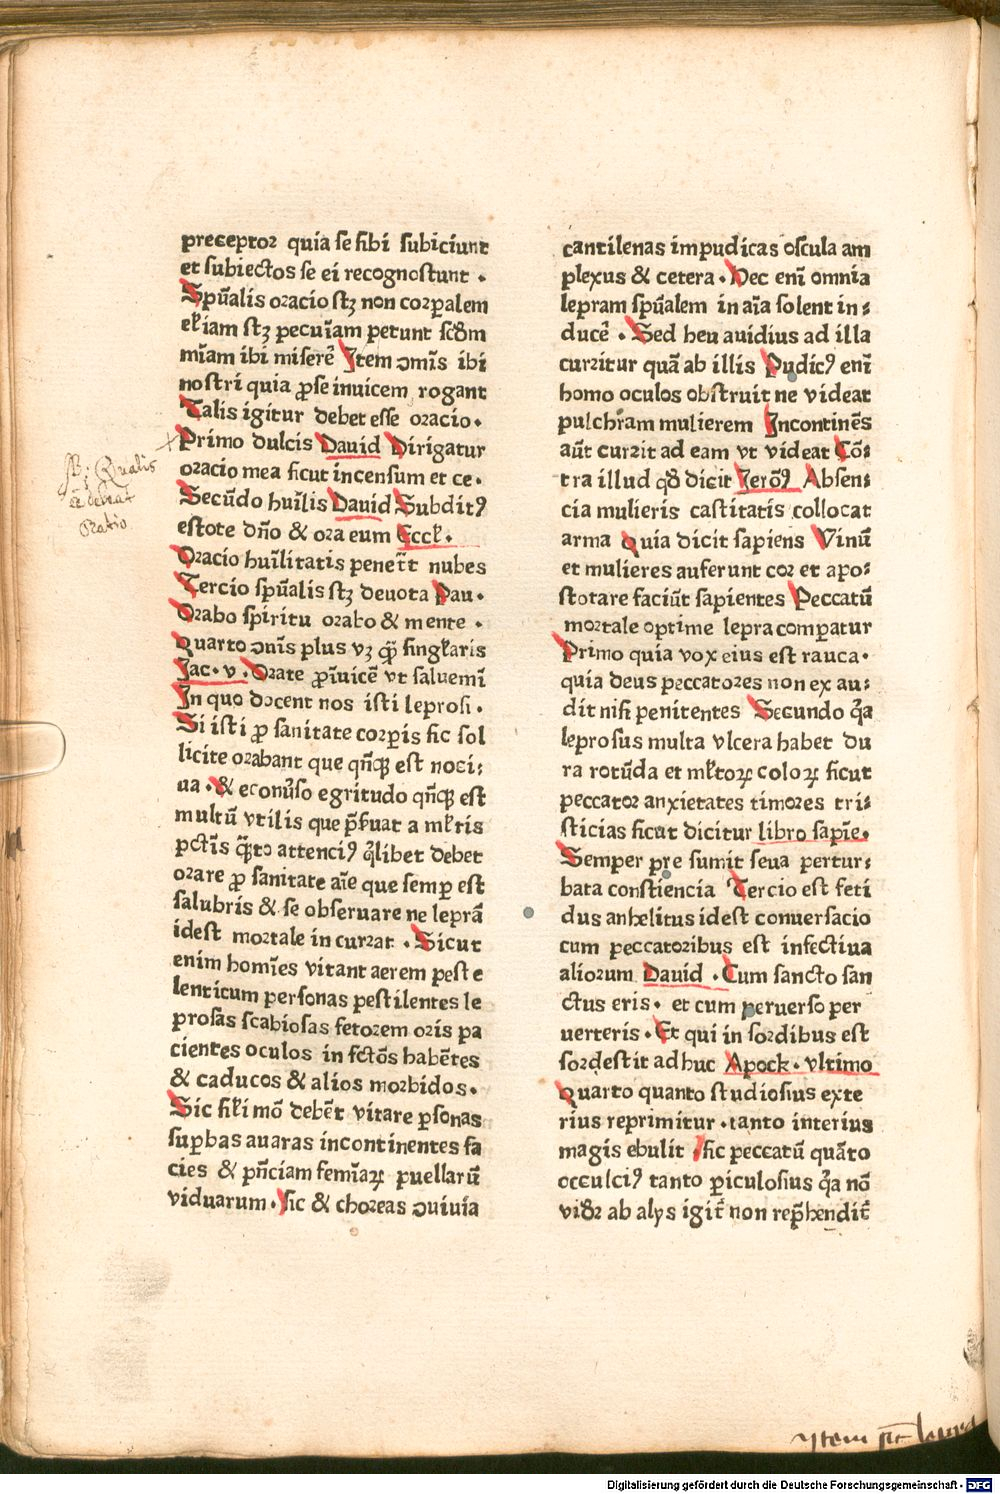 preceptor quia se sibi subiciunt
et subiectos se ei recognoscunt .
Spũalis oracio scꝫ non corpalem
elꝛiam scꝫ pecuĩam petunt scðm
miãm ibi miserẽ Item ꝯmis ibi
nostri quia ꝓ se inuicem rogant
Talis igitur debet esse oracio .
Primo dulcis Dauid Dirigatur
oracio mea sicut incensum et ce .
Secũdo huĩlis Dauid Subditꝰ
estote dño & ora eum Ecck .
Oracio huĩlitatis penet̃t nubes
Tercio spũalis scꝫ deuota Pau .
Orabo spiritu orabo & mente .
Quarto ꝯnis plus vꝫ qꝫ singlꝛaris
Jac . v . Orate ꝓ ĩuicẽ vt saluemĩ
In quo docent nos isti leprosi .
Si isti ꝓ sanitate corpis sic sol
licite orabant que qñqꝫ est noci⸗
ua . & econũso egritudo qñqꝫ est
multũ vtilis que p̃suat a mlꝛtis
pctĩs q̃to attenciꝰ q̃libet debet
orare ꝓ sanitate aĩe que semꝑ est
salubris & se obseruare ne leprã
idest mortale in currat . Sicut
enim homĩes vitant aerem peste
lenticum personas pestilentes le
prosas scabiosas fetorem oris pa
cientes oculos in fctõs habẽtes
& caducos & alios morbidos .
Sic silꝛi mõ debẽt vitare ꝑsonas
suꝑbas auaras incontinentes fa
cies & pñciam femĩaꝝ puellarũ
viduarum . sic & choreas ꝯuiuia
NB; Qualis
eē debeat
Oratio
cantilenas impudicas oscula am
plexus & cetera . Hec enĩ omnia
lepram spũalem in aĩa solent in⸗
ducẽ . Sed heu auidius ad illa
curritur quã ab illis Pudicꝰ enĩ
homo oculos obstruit ne videat
pulchram mulierem Incontinẽs
aũt currit ad eam vt videat Cõ⸗
tra illud qð dicit Jeroꝰ Absen⸗
cia mulieris castitatis collocat
arma Quia dicit sapiens Vinũ
et mulieres auferunt cor et apo⸗
stotare faciũt sapientes Peccatũ
mortale optime lepra compatur
Primo quia vox eius est rauca .
quia deus peccatores non ex au⸗
dit nisi penitentes Secundo q̃a
leprosus multa vlcera habet du
ra rotũda et mlꝛtoꝝ coloꝝ sicut
peccator anxietates timores tri⸗
sticias sicut dicitur libro sapĩe .
Semper pre sumit seua pertur⸗
bata constiencia Tercio est feti
dus anhelitus idest conuersacio
cum peccatoribus est infectiua
aliorum Dauid . Cum sancto san
ctus eris . et cum peruerso per
uerteris . Et qui in sordibus est
sordestit adhuc Apock . vltimo
Quarto quanto studiosius exte
rius reprimitur . tanto interius
magis ebulit . sic peccatũ quãto
occulciꝰ tanto ꝑiculosius q̃a nõ
viðr ab alys igit̃ non rep̃hendit̃
Digitalisierung gefördert durch die Deutsche Forschungsgemeinschaft - DFG